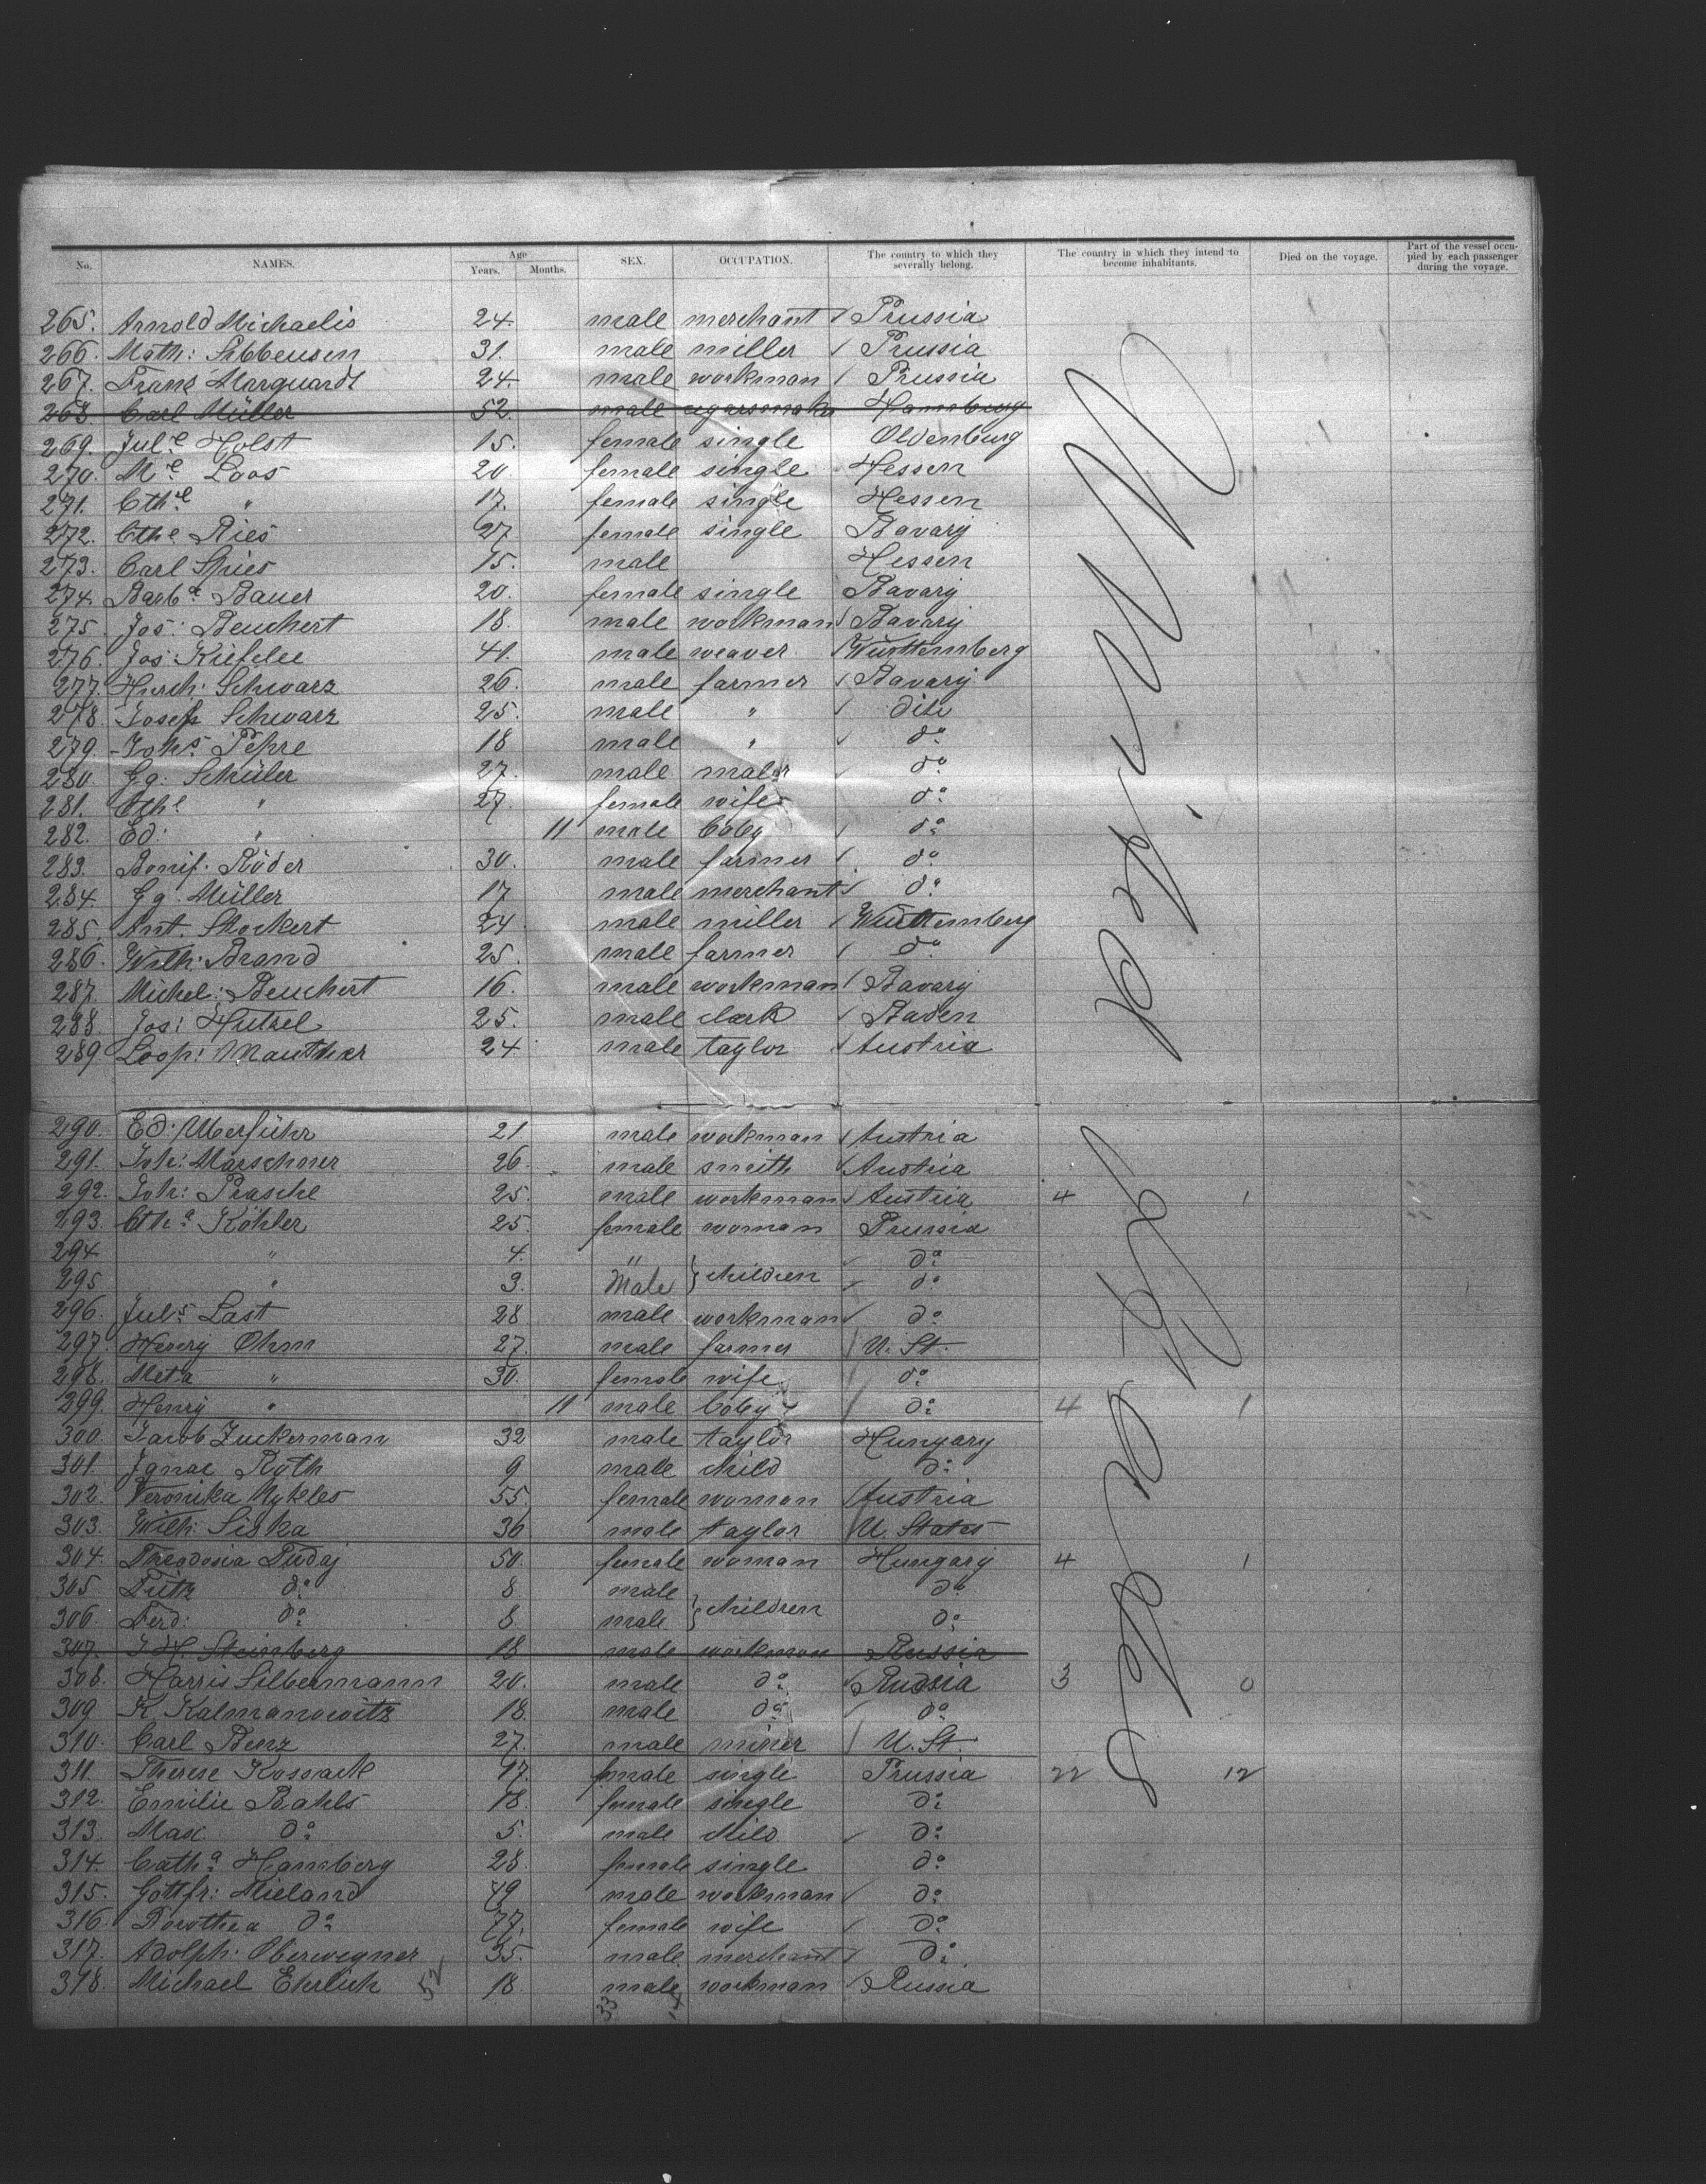 No. NAMES. Age Years. Months. SEX. OCCUPATION. The country to which they severally belong. The country in which they intend to become inhabitants. Died on the voyage. Part of the vessel occupied by each passenger during the voyage.
265. Arnold Michaelis 24. male merchant Prussia
266. Math: Sibbensen 31. male miller Prussia
267. Franz Marquardt 24. male workman Prussia
268. Carl Müller 52. male Hamburg
269. Jul.e Holst 15. female single Oldenburg
270. M.e Loos 20. female single Hessen
271. Cth.e " 17. female single Hessen
272. Cthe Ries 27 female single Bavary
273. Carl Spies 15. male Hessen
274. Barb.a Bauer 20. female single Bavary
275. Jos: Beuchert 18. male workman Bavary
276. Jos: Kiefele 41. male weaver Württemberg
277. Hirsch: Schwarz 26. male farmer Bavary
278. Josef Schwarz 25. male " dito
279. Joh.s 18 male " do
280. Gg: Schüler 27. male do
281. Cthe " 27. female wife do
282. Ed: " 11 male baby do
283. Bonif: Röder 30. male farmer do
284. Gg. Müller 17 male merchant do
285. Ant. Stockert 24 male miller Württemberg
286. Wilh: Brand 25. male farmer do
287. Michel: Beuchert 16. male workman Bavary
288. Jos: Hutzel 25. male clerk Baden
289. Leop: Mauthner 24 male taylor Austria
290. Ed: Uberführ 21 male workman Austria
291. Joh: Marschner 26. male smith Austria
292. Joh: Prasche 25. male workman Austria 4 1
293. Ctha Köhler 25. female woman Prussia
294 " 4. " children do
295 " 3. Male do
296. Juls Last 28 male workman do
297. Henry Ohm 27. male farmer U. St.
298. Meta " 30. female wife do
299. Henry " 11 male baby do 4 1
300. Jacob Zuckerman 32 male taylor Hungary
301. Ignac Roth 9 male child do
302. Veronika Nykles 55. female woman Austria
303. Wilh: Siska 36 male taylor U. States
304. Theodosia Dudaj 50. female woman Hungary 4 1
305. do 8. male children do
306. Ferd: do 8. male do
307. J H. Steinberg 18 male workman Russia
308. Harris Silbermann 20. male do Russia 3 0
309 K. Kalmanowitz 18. male do do
310. Carl Benz 27. male miner U. St.
311. Therese Kossack 17. female single Prussia 22 12
312. Emilie Bahls 18. female single do
313. Max do 5. male child do
314. Catha Hamberg 28. female single do
315. Gottfr: Mieland 79 male workman do
316. Dorothea do 77. female wife do
317. Adolph: Oberwegner 35. male merchant do
318. Michael Ehrlich 52 18 male workman Russia
33